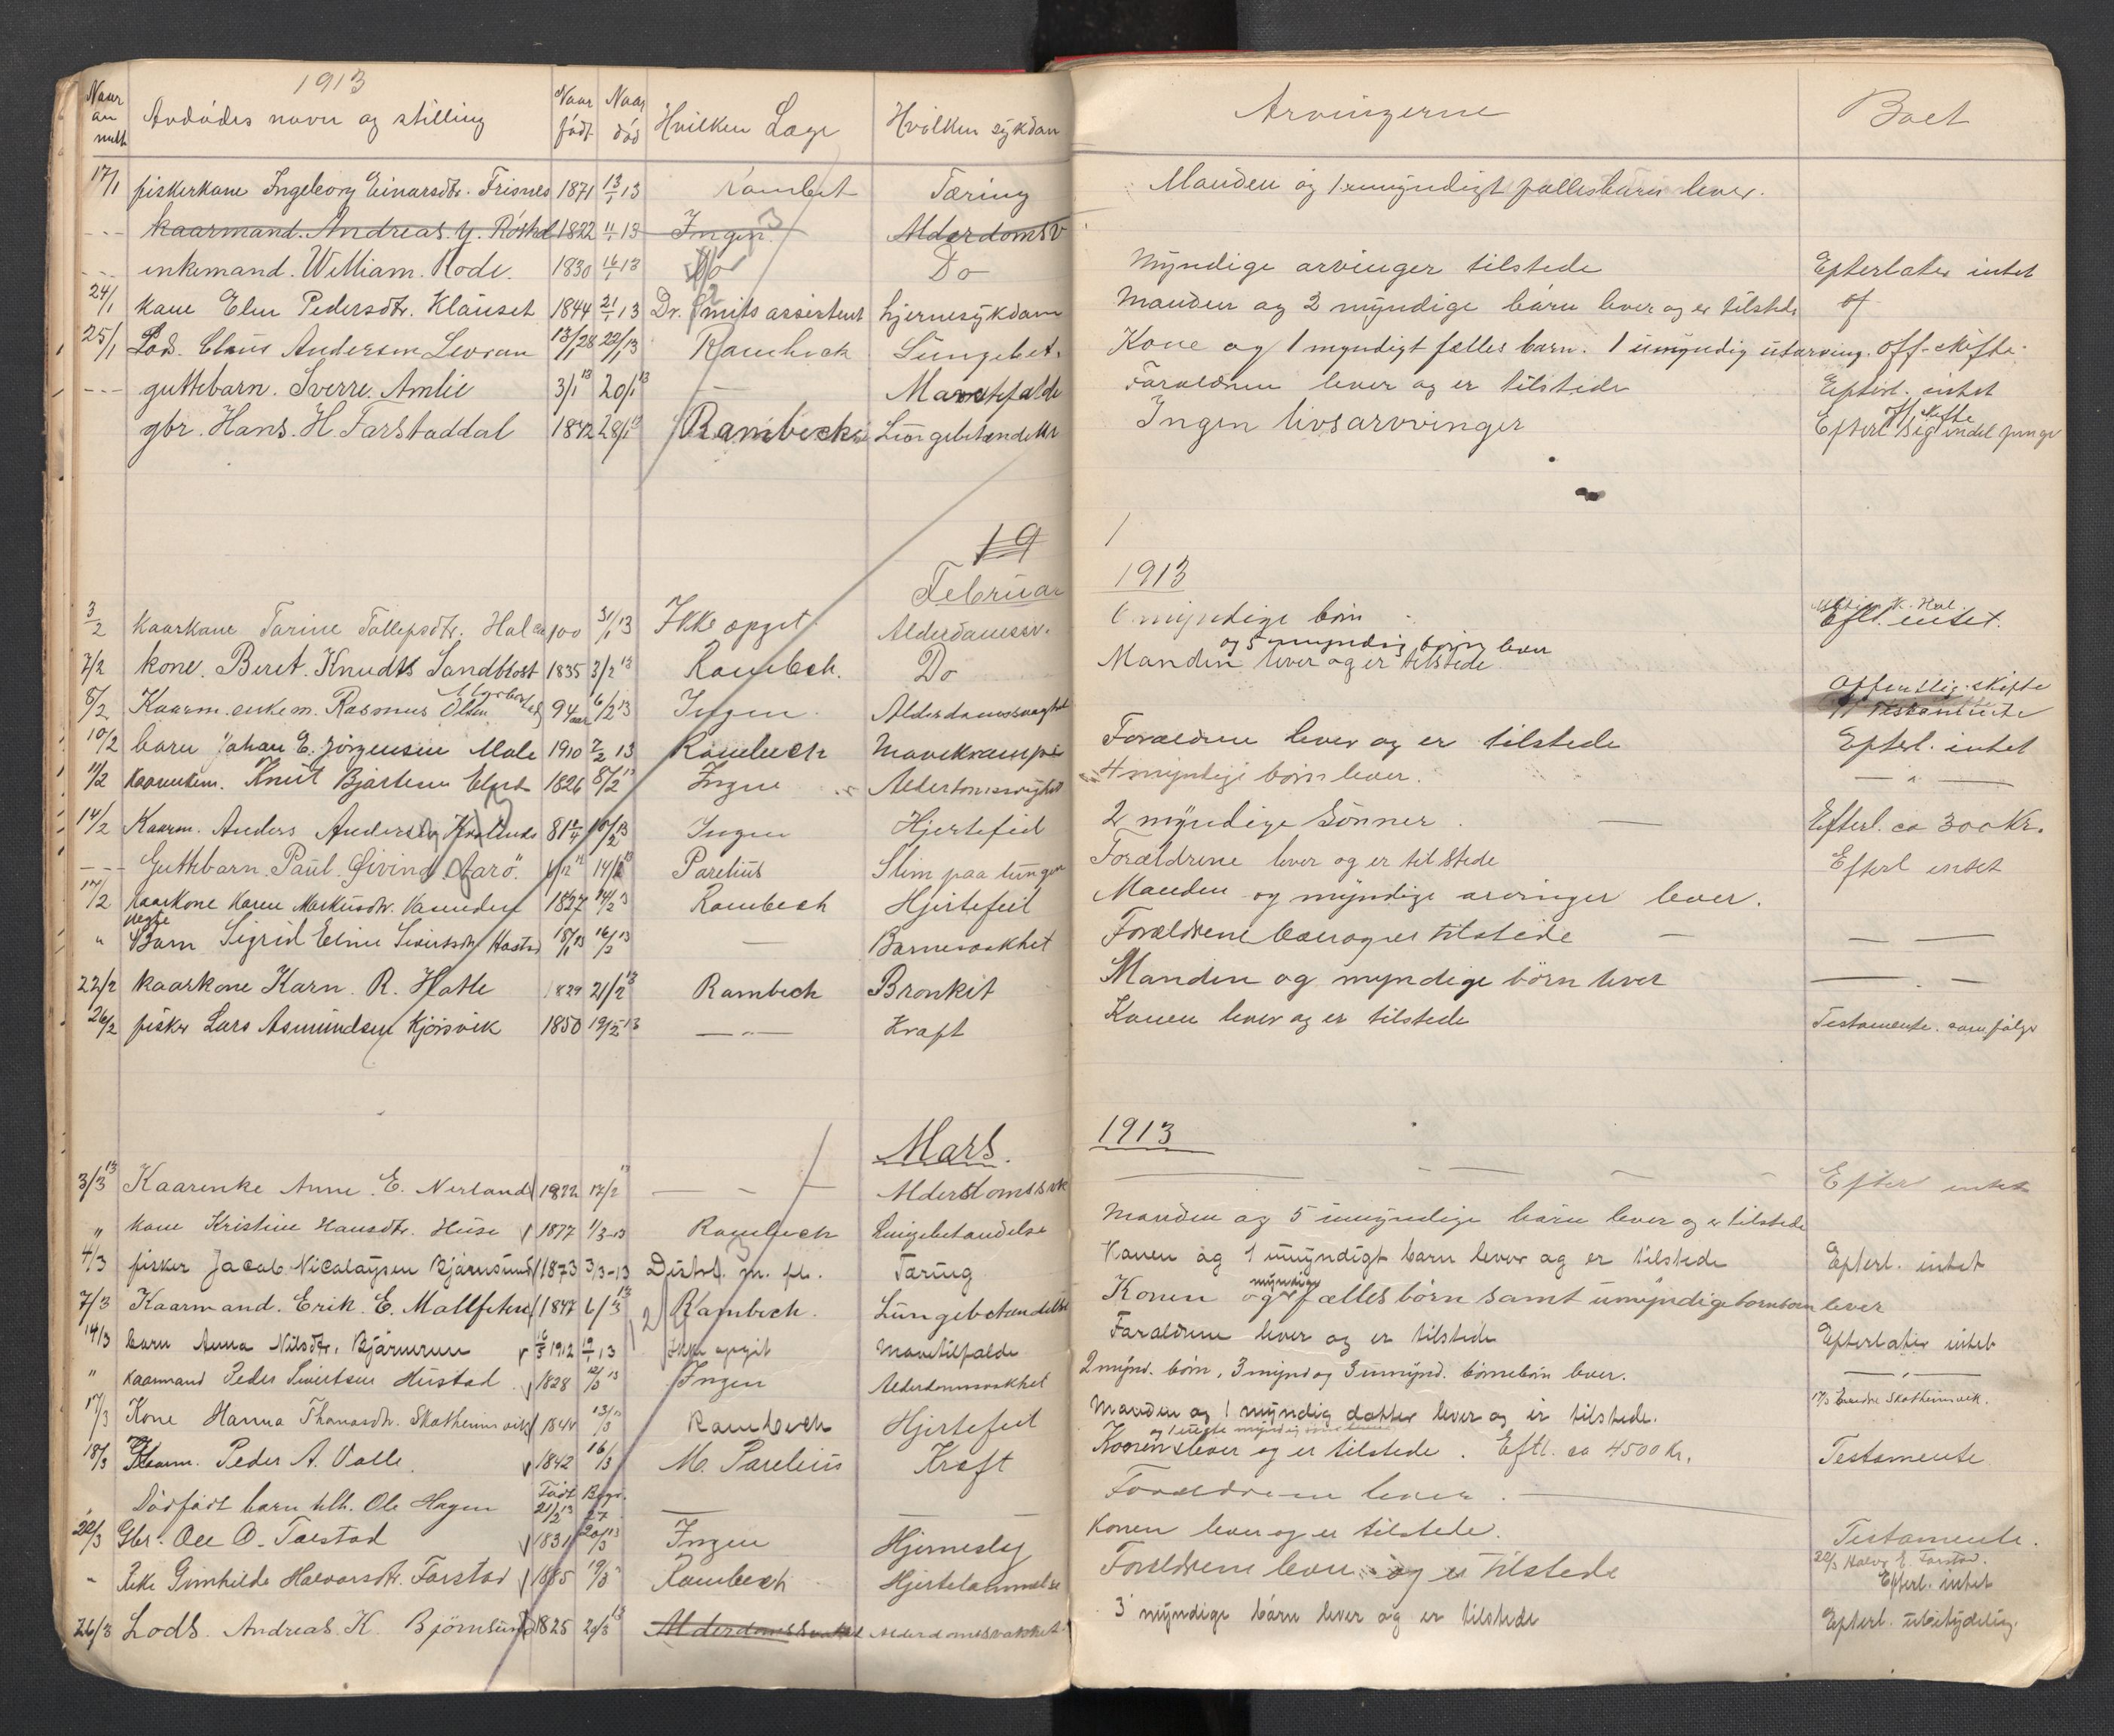 1913
Naar anmeldt | Avdødes navn og stilling | Naar født | Naar død | Hvilken Læge | Hvilken sykdom | Arvingerne | Boet
17/1 fiskerkone Ingeborg Einarsdtr. Frisnes 1871 13/1 13 Rambek Tæring Manden og 1 umyndigt fællesbarn lever.
--- kaarmand. Andreas. 1822 11/1 13 Ingen Alderdomsv
--- enkemand. William. Rode. 1830 16/1 13 Do Do Myndige arvinger tilstede Efterlater intet
24/1 kone Elen Pedersdtr. Klauset 1844 21/1 13 Dr. Smits assistent hjernesykdom Manden og 2 myndige børn lever og er tilstede
25/1 Lods. Claus Andersen Levran 13/1 28 22/1 13 Rambech Lungebet. Kone og 1 myndigt fælles barn. 1 umyndig utarving. Off. skifte.
--- guttebarn. Sverre. Amlie 3/1 13 20/1 13 — Forældrene lever og er tilstede Efterl. intet
gbr. Hans. H. Farstaddal 1842 28/1 13 Rambech Lungebetændelse Ingen livsarvinger Off. skifte Efterl. sig endel penge
19
Februar 1913
3/2 kaarkone Tarine Tollefsdtr. Hol ca 100 31/1 13 Ikke opgit Alderdomssv. 6 myndige børn Eftl. intet.
7/2 kone. Beret. Knudts Sandblost 1835 3/2 13 Rambech. Do Manden lever og er tilstede og 5 myndig børn lever
8/2 Kaarm. enkem. Rasmus Olsen 94 aar 6/2 13 Ingen Alderdomssvaghet Offentlig skifte Testamente
10/2 barn Johan E. Jørgensen Male 1910 7/2 13 Rambech Mavekrampe Forældrene lever og er tilstede Efterl. intet
11/2 Kaarenkem. Knut Bjartesen 1826 8/2 13 Ingen Alderdomssvaghet 4 myndige børn lever. — " —
14/2 Kaarm. Anders Andersen 81 10/2 13 Ingen Hjertefeil 2 myndige Sønner. — Efterl. ca 300 Kr.
--- Guttebarn. Paul. Øivind. Aarö. 14/2 13 Parelius Slim paa lungen Forældrene lever og er tilstede Efterl intet
17/2 Kaarkone Karen Markusdtr. 1827 14/2 13 Rambech Hjertefeil Manden og myndige arvinger lever.
" uegte Barn Sigrid Eline Sivertsdtr. Hustad 18/1 13 16/2 13 — Barnesvakhet Forældrene lever og er tilstede — — —
22/2 kaarkone Karn. R. Hatle 1829 21/2 13 Rambech Bronkit Manden og myndige börn lever — —
26/2 fisker Lars Asmundsen Kjörsvik 1850 19/2 13 — " — Kraft Konen lever og er tilstede Testamente. som følge
Mars. 1913
3/3 13 Kaarenke Anne. E. Nerland 1822 17/2 13 — — — Alderdomssvk Efterl intet
" kone Kristine Hansdtr. Huse 1877 1/3-13 Rambech Lungebetændelse Manden og 5 umyndige børn lever og er tilstede
4/3 fisker Jacob Nicolaysen Bjørnsund 1873 3/3-13 Distrl. m. fl. Tæring Konen og 1 umyndigt barn lever og er tilstede Efterl. intet
7/3 Kaarmand. Erik. E. Mallfetsen 1847 6/3 13 Rambech. Lungebetændelse Konen og myndige fælles börn samt umyndige barnebarn lever
14/3 barn Anna Nilsdtr. 1912 13 Ikke opgit Mavetilfælde Forældrene lever og er tilstede Efterlater intet
" kaarmand Peder Sivertsen Hustad 1828 12/3 13 Ingen Alderdomsvakhet 2 mynd. børn, 3 mynd og 3 umynd. børnebørn lever. — " —
17/3 Kone Hanna Thomasdtr. Skotheimsvik 1844 13/3 13 Rambech Hjertefeil Manden og 1 myndig datter lever og er tilstede. 17/3 Skotheimsvik.
18/3 Kaarm. Peder A. Valle. 1842 16/3 M. Parelius Kraft Konen lever og er tilstede. Eftl. ca 4500 Kr. Testamente
" Dødfødt barn tilh. Ole Hagen Født 21/2 13 Begr. 27 — — Forældrene lever. —
22/3 Gbr. Ole O. Tarstad 1831 20/3 13 Ingen Hjerneslag Konen lever og er tilstede. Testamente.
" Pike Gunhilde Halvorsdtr. Farstad 19/3 13 Rambech Hjertelammelse Forældrene lever og er tilstede 22/3 Halvor E. Farstad. Efterl. intet
26/3 Lods. Andreas. K. Björnsund 1825 20/3 13 Alderdomssvakhet Alderdomsvakhet 3 myndige børn lever og er tilstede Efterl. ubetydelig.